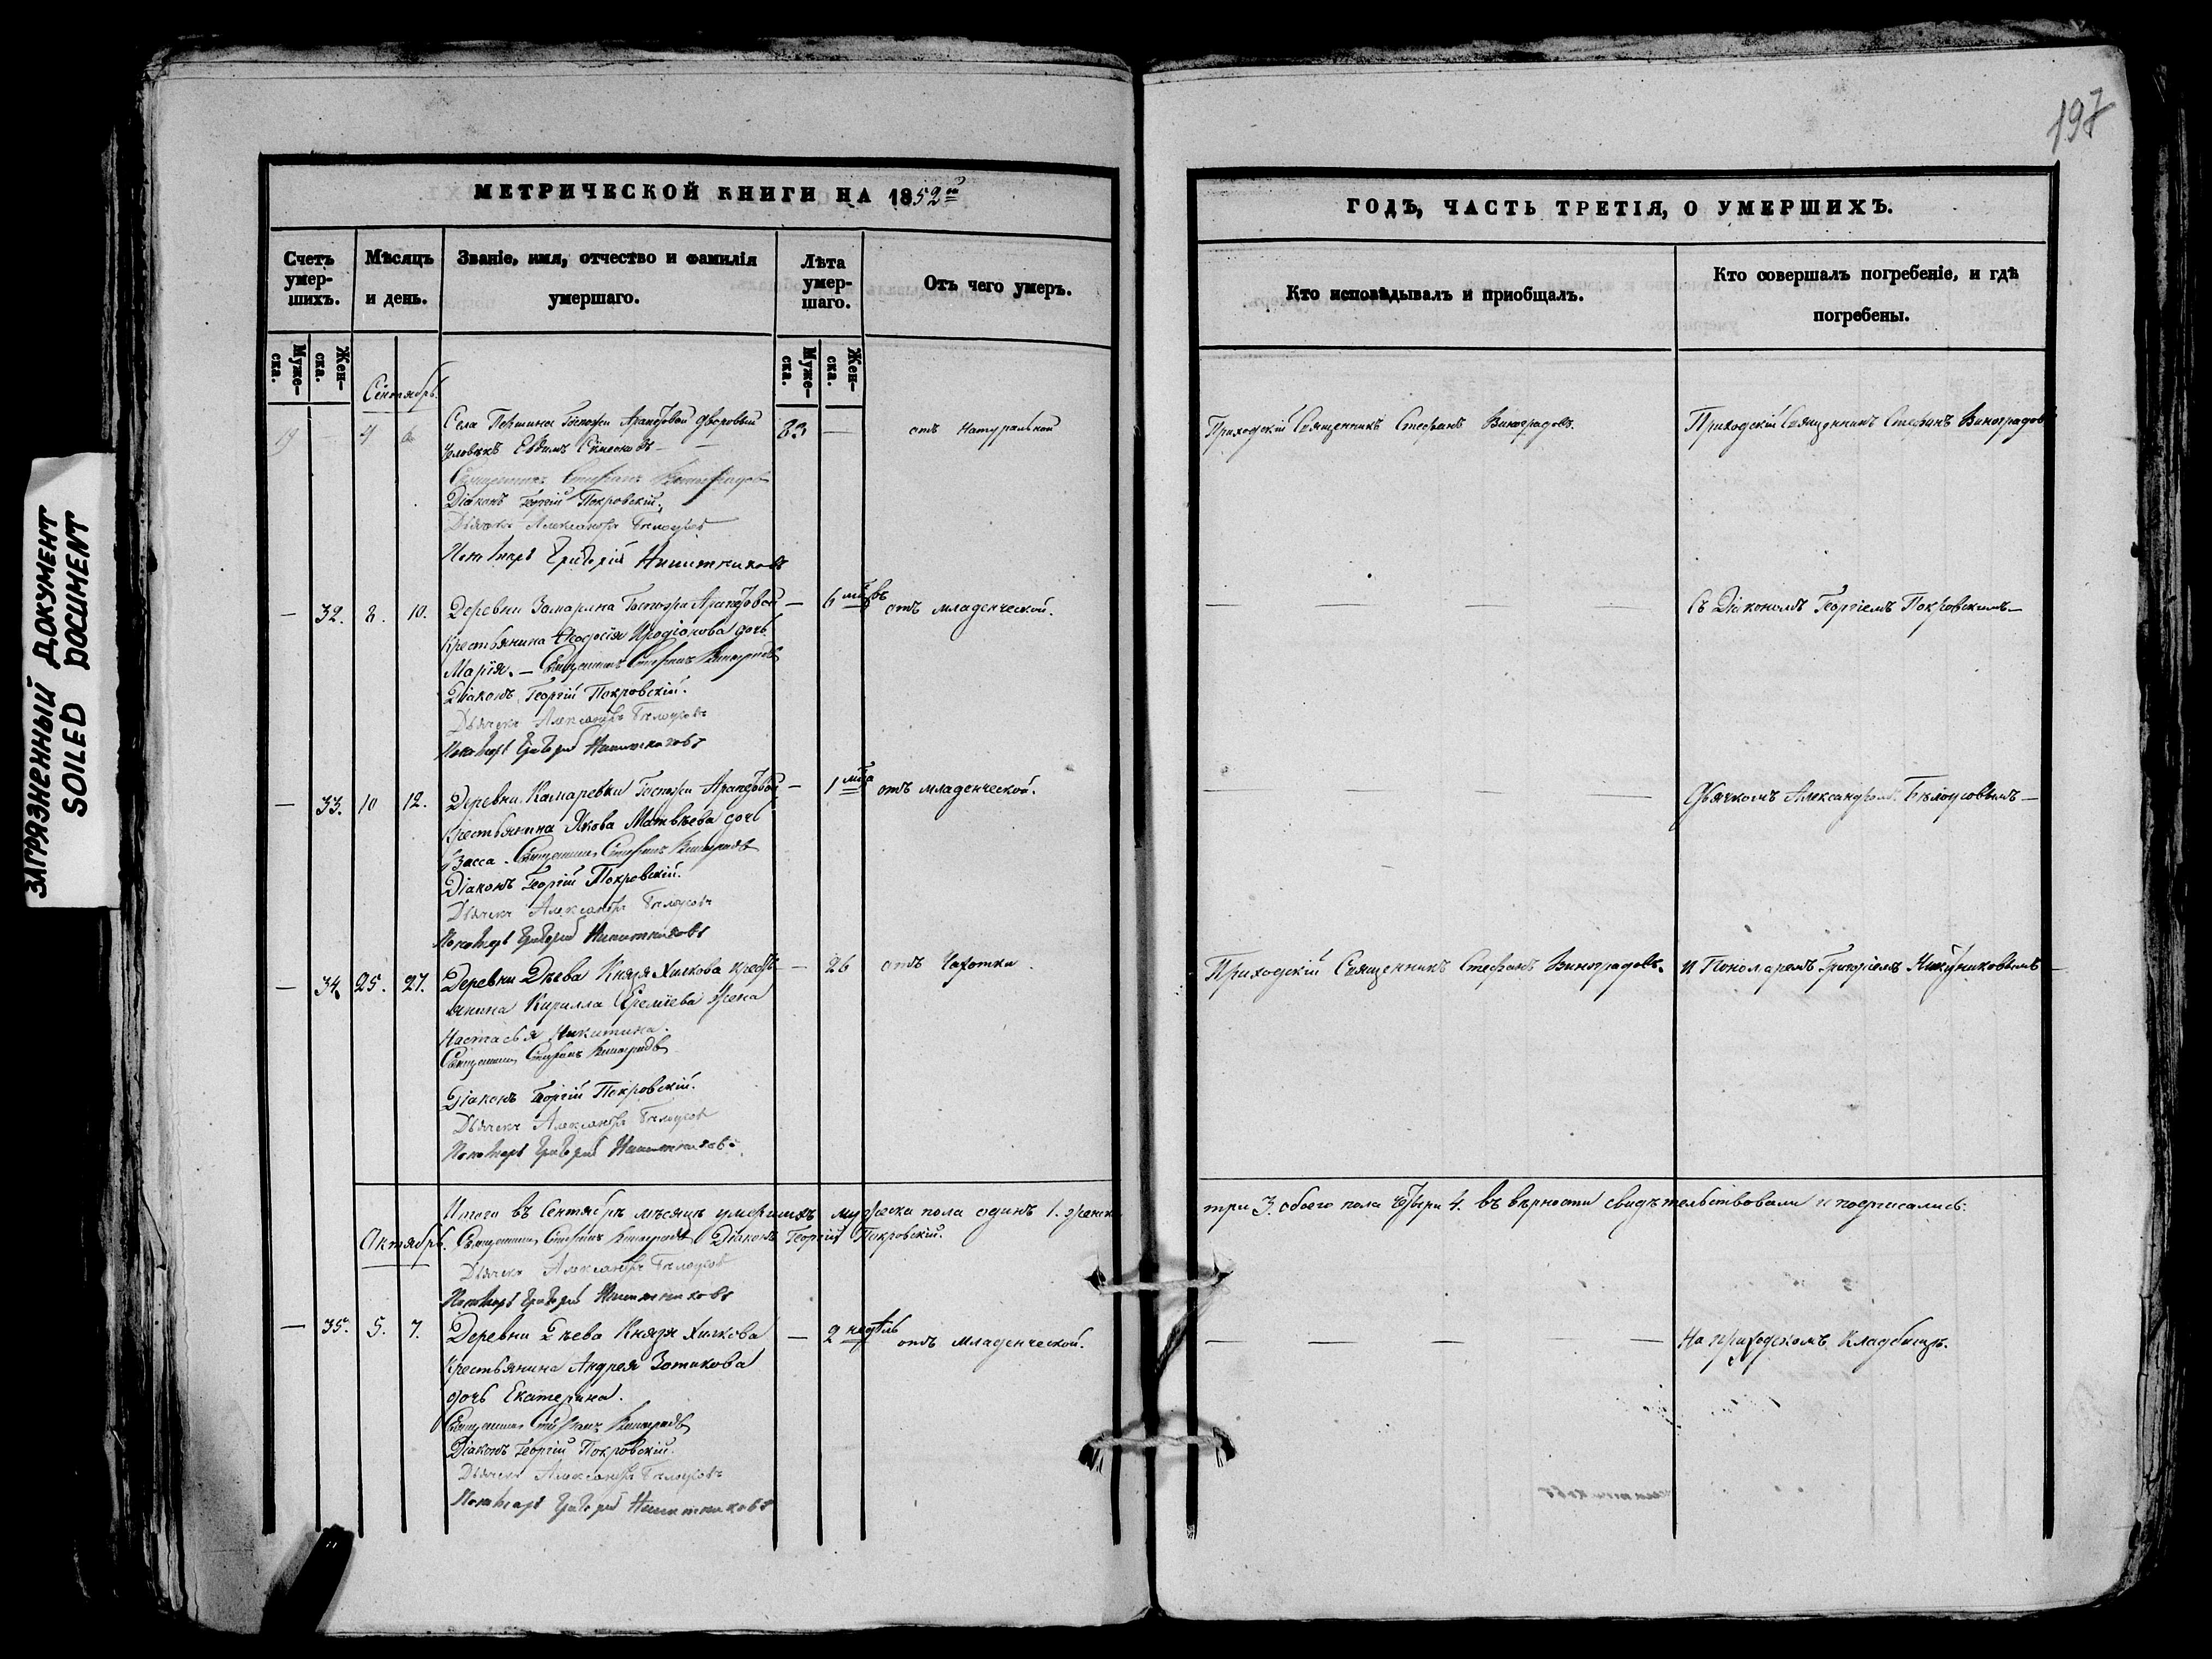 197
ЗАГРЯЗНЕННЫЙ ДОКУМЕНТ
SOILED DOCUMENT
МЕТРИЧЕСКОЙ КНИГИ НА 1852й
ГОДЪ, ЧАСТЬ ТРЕТІЯ, О УМЕРШИХЪ.
Счетъ умер-шихъ.
Мѣсяцъ и день.
Званіе, имя, отчество и фамилія умершаго.
Лѣта умер-шаго.
Отъ чего умеръ.
Кто исповѣдывалъ и приобщалъ.
Кто совершалъ погребеніе, и гдѣ погребены.
Муже-ска.
Жен-ска.
Муже-ска.
Жен-ска.
Сентябрь.
19 — 4 6 Села Госпожи Араповой дворовый — отъ Натуральной Приходскій Священникъ Стефанъ Виноградовъ. Приходскій Священникъ Стефанъ Виноградовъ
человѣкъ Евдимъ —
Священникъ Стефанъ Виноградовъ
Діаконъ Георгій Покровскій.
Дьячекъ Александръ Бѣлоусовъ
Пономарь Григорій
— 32. 8. 10. Деревни Госпожи Араповой — 6 мѣ-въ отъ младенческой. — — — — Съ Діакономъ Георгіемъ Покровскимъ —
Крестьянина Иродіонова дочь
Марія. — Священникъ Стефанъ Виноградовъ
Діаконъ Георгій Покровскій.
Дьячекъ Александръ Бѣлоусовъ
Пономарь Григорій
— 33. 10 12. Деревни Камаревки Госпожи Араповой — 1 мѣ-ца отъ младенческой. — — — — Дьячкомъ Александромъ Бѣлоусовымъ —
Крестьянина Якова Матвѣева дочь
Васса. Священникъ Стефанъ Виноградовъ
Діаконъ Георгій Покровскій.
Дьячекъ Александръ Бѣлоусовъ
Пономарь Григорій
— 34. 25. 27. Деревни Князя Хилкова Кресть- — 26 отъ Чахотки. Приходскій Священникъ Стефанъ Виноградовъ. и Пономаремъ Григоріемъ
янина Кирилла Еремѣева жена
Настасья Никитина.
Священникъ Стефанъ Виноградовъ
Діаконъ Георгій Покровскій.
Дьячекъ Александръ Бѣлоусовъ
Пономарь Григорій
Итого въ Сентябрѣ мѣсяцѣ умершихъ мужеска пола одинъ 1. женска три 3. обоего пола четыри 4. въ вѣрности свидѣтельствовали и подписались:
Октябрь. Священникъ Стефанъ Виноградовъ Діаконъ Георгій Покровскій.
Дьячекъ Александръ Бѣлоусовъ
Пономарь Григорій
— 35. 5. 7. Деревни Князя Хилкова — 2 недѣль отъ младенческой. — — — На приходскомъ Кладбищѣ.
Крестьянина Андрея Зотикова
дочь Екатерина.
Священникъ Стефанъ Виноградовъ
Діаконъ Георгій Покровскій.
Дьячекъ Александръ Бѣлоусовъ
Пономарь Григорій